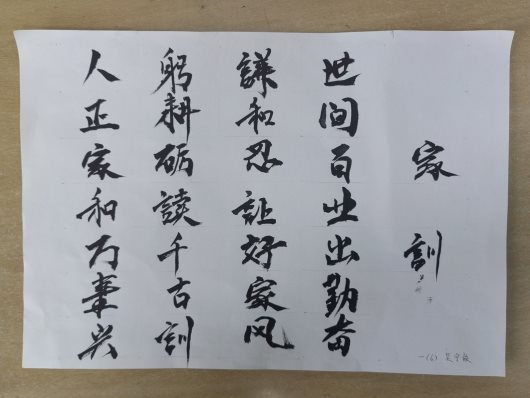 家训
世间百业出勤奋
謙和忍讓好家风
躬耕砺读千古训
人正家和万事兴
一(6)